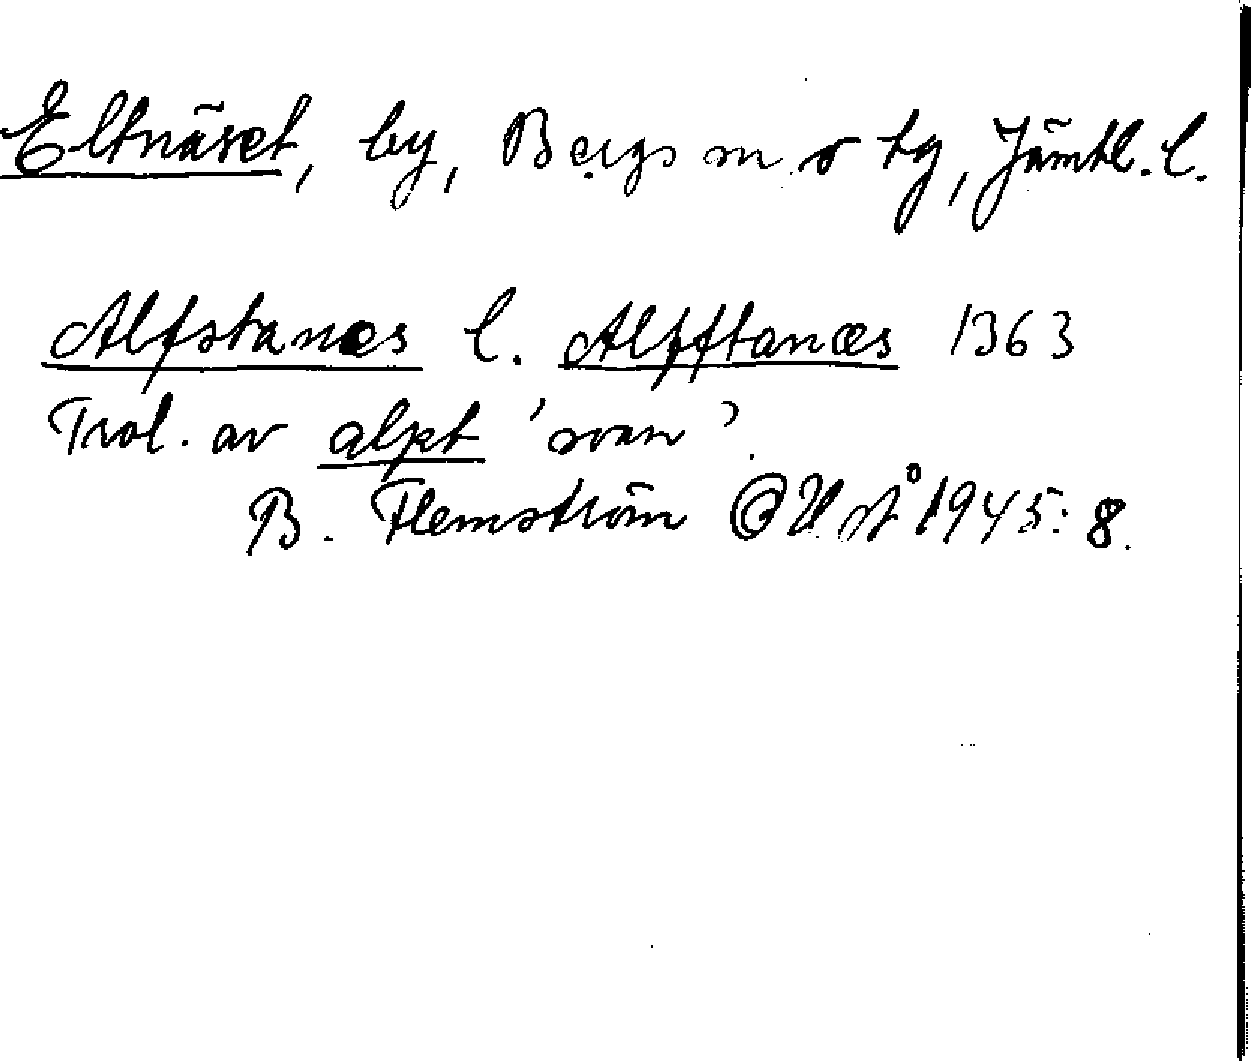 Eltnäset, by, Bergs sn o tg, Jämtl. l.
Alfstanæs l. Alfftanæs 1363
Trol. av alpt 'svan'.
B. Flemström 1945: 8.